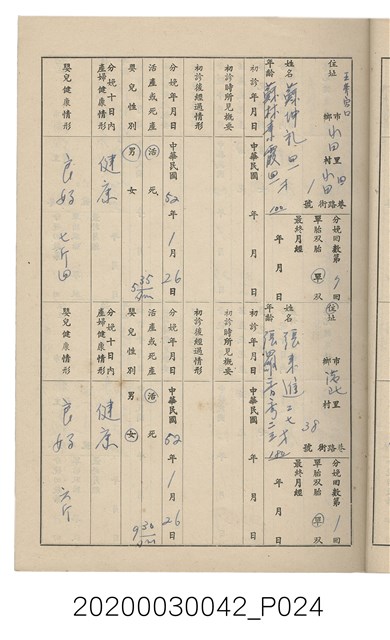 住址
市
鄉
小田
里
村
小田
1
號
街路巷
分娩回數第 9 回
單胎 双胎 單 双
最終月經 年 月 日
姓名
年齡
初診 年 月 日
初診時所見概要
初診後經過情形
分娩年月日 中華民國 52 年 1 月 26 日
活產或死產 活 死
嬰兒性別 男 女
分娩十日內
產婦健康情形 健康
嬰兒健康情形 良好 七斤四
住址
市
鄉
里
村
38
號
街路巷
分娩回數第 1 回
單胎 双胎 單 双
最終月經 年 月 日
姓名
年齡
初診 年 月 日
初診時所見概要
初診後經過情形
分娩年月日 中華民國 52 年 1 月 26 日
活產或死產 活 死
嬰兒性別 男 女
分娩十日內
產婦健康情形 健康
嬰兒健康情形 良好 六斤
20200030042_P024